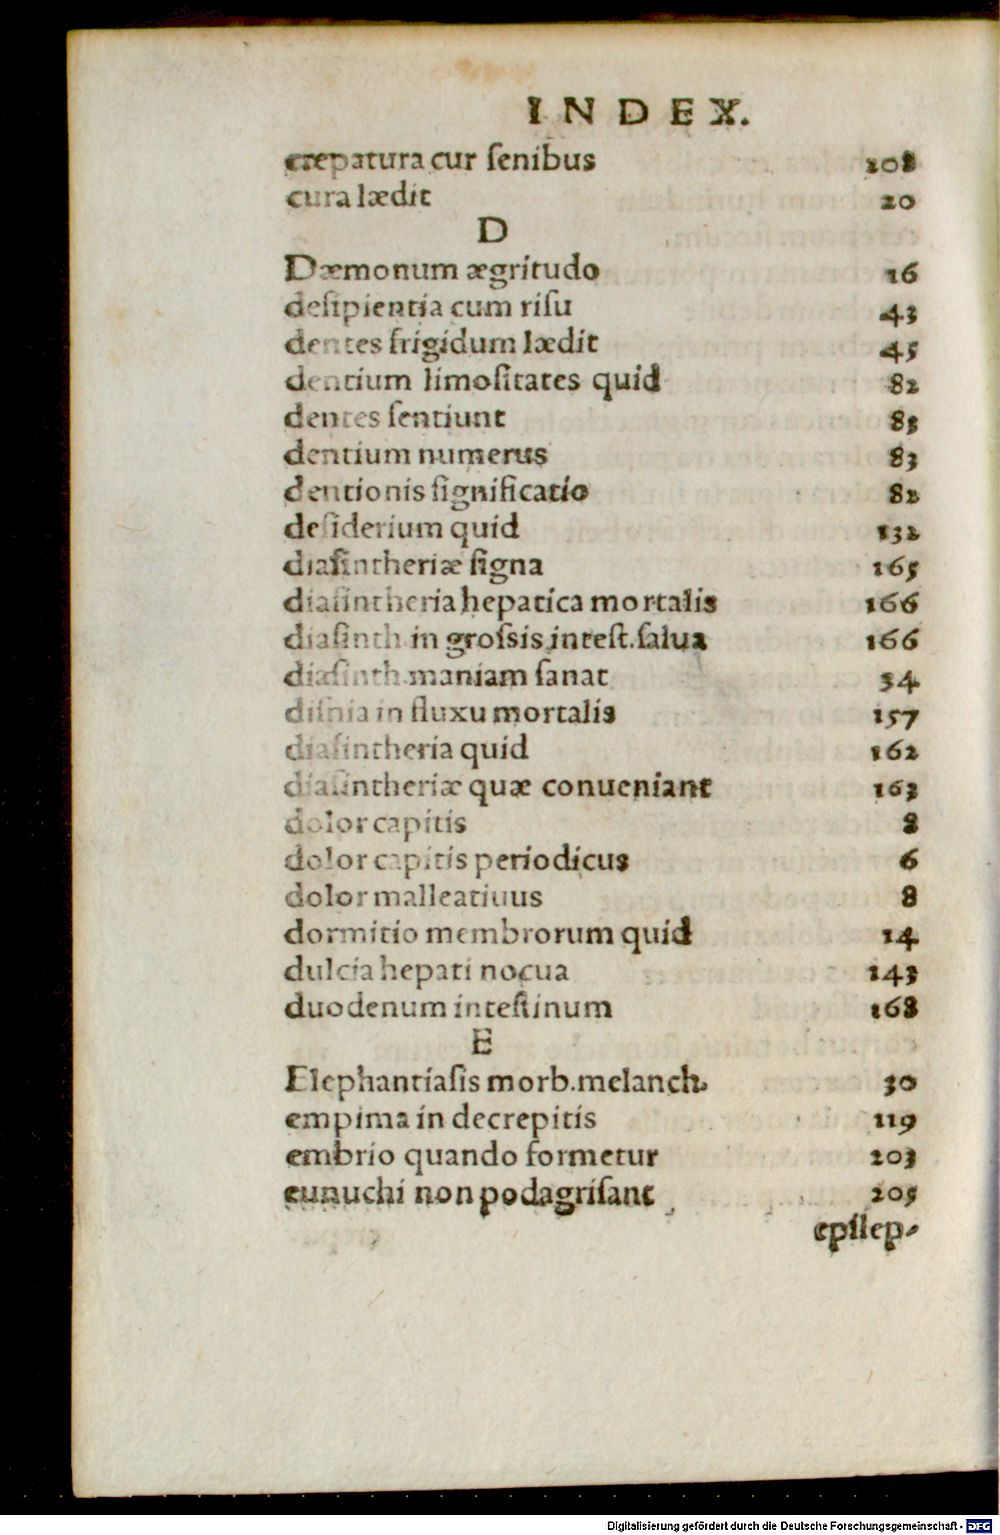 INDEX.
crepatura cur ſenibus 208
cura lædit 20
D
Dæmonum ægritudo 16
deſipientia cum riſu 43
dentes frigidum lædit 45
dentium limoſitates quid 82
dentes ſentiunt 85
dentium numerus 83
dentionis ſignificatio 82
deſiderium quid 132
diaſintheriæ ſigna 165
diaſintheria hepatica mortalis 166
diaſinth. in groſsis inteſt. ſalua 166
diaſinth. maniam ſanat 34
diſnia in fluxu mortalis 157
diaſintheria quid 162
diaſintheriæ quæ conueniant 163
dolor capitis 8
dolor capitis periodicus 6
dolor malleatiuus 8
dormitio membrorum quid 14
dulcia hepati nocua 143
duodenum inteſtinum 168
E
Elephantiaſis morb. melanch. 30
empima in decrepitis 119
embrio quando formetur 203
eunuchi non podagriſant 205
epilep-
Digitalisierung gefördert durch die Deutsche Forschungsgemeinschaft - DFG